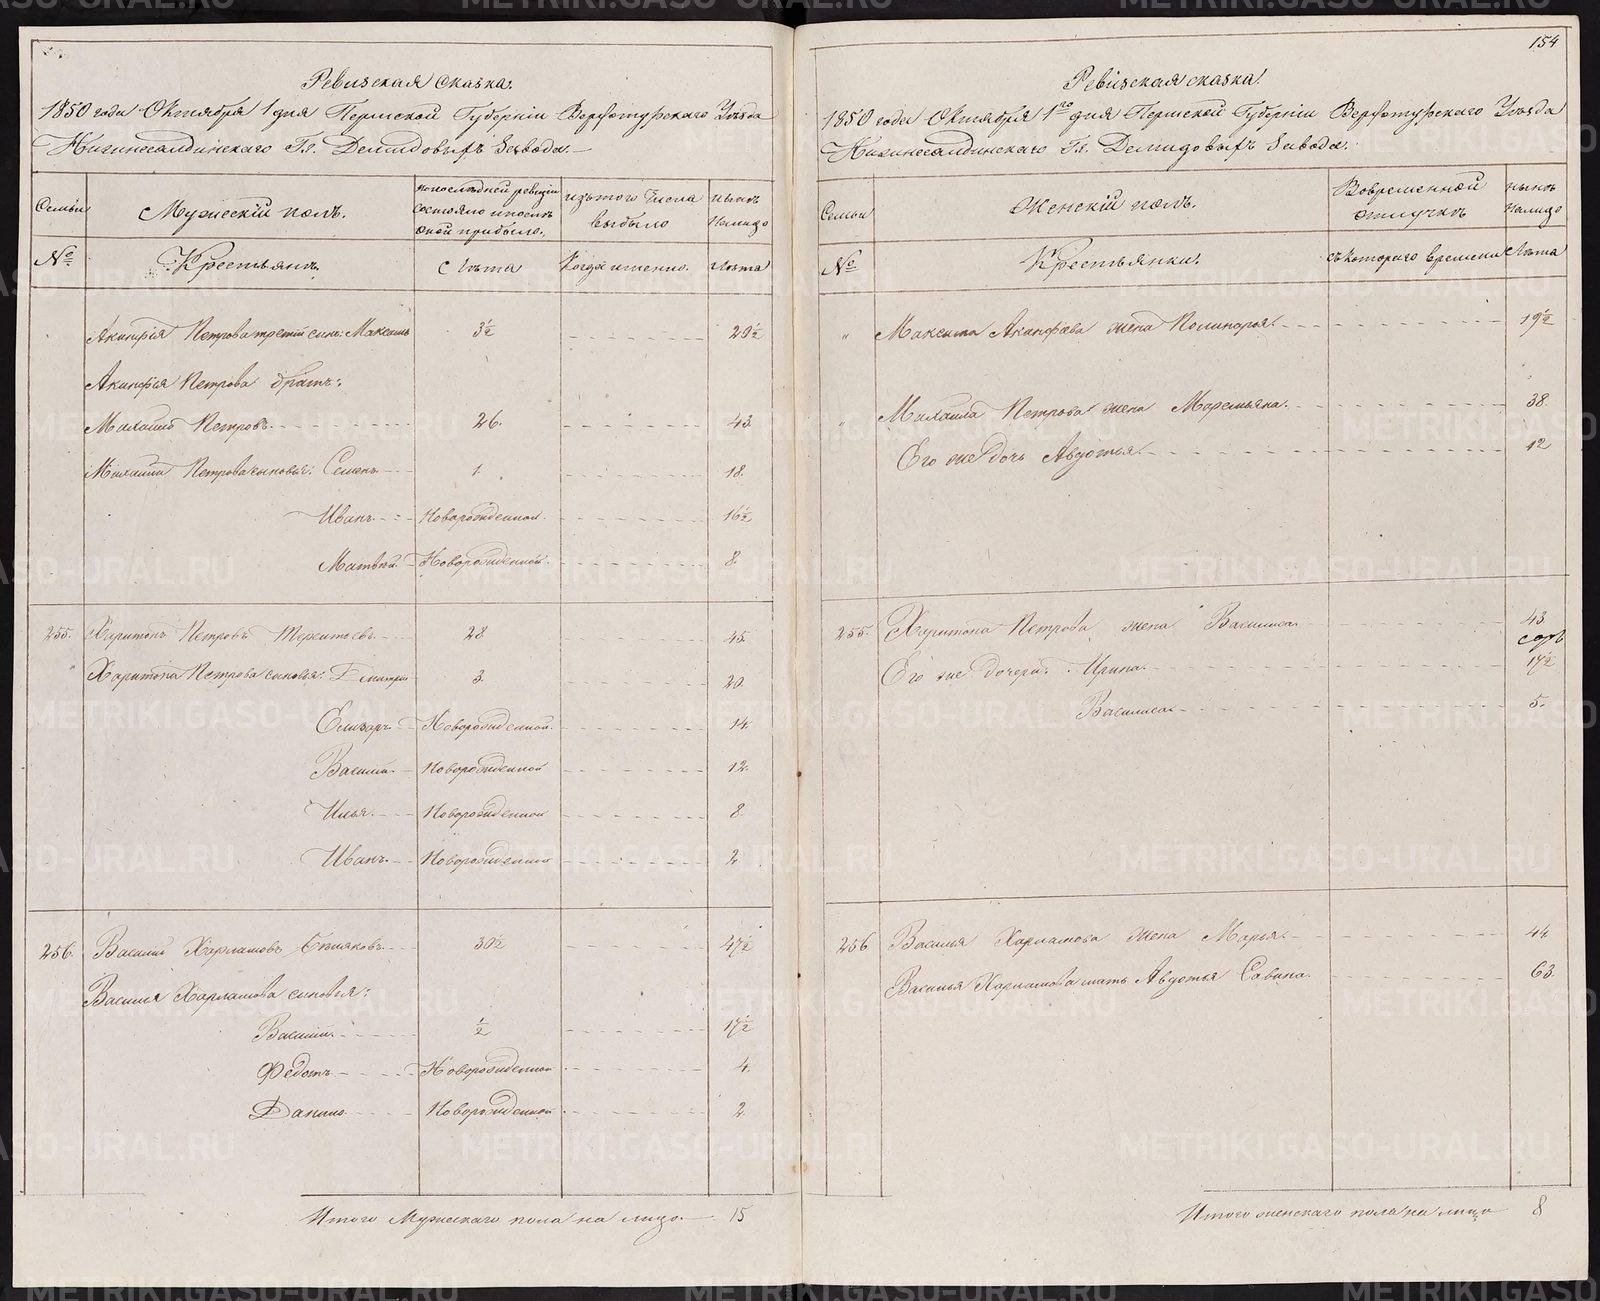 Ревизская сказка.
1850 года Октября 1 дня Пермской Губернiи Верхотурскаго Уѣзда
Нижнесалдинскаго Гг. Демидовыхъ Завода.
Семьи
Мужескiй полъ.
по последней ревизiи состояло и после оной прибыло.
изъ того числа выбыло
нынѣ на лицо
№
Крестьянъ.
Лѣта
Когда именно.
Лѣта
Акинфiя Петрова третiй сынъ: Максимъ 3½ 20½
Акинфiя Петрова братъ:
Михайло Петровъ. 26. 43.
Михаила Петрова сыновья: Семенъ 1. 18.
Иванъ Новорожденной. 16½
Матвѣй Новорожденной. 8.
255. Харитонъ Петровъ Терентьевъ. 28. 45.
Харитона Петрова сыновья: Дмитрiй 3. 20.
Елизаръ Новорожденной. 14.
Василiй. Новорожденной 12.
Илья. Новорожденной 8.
Иванъ. Новорожденной 2.
256. Василiй Харламовъ 30½ 47½
Василья Харламова сыновья:
Василiй. ½ 17½
Федотъ Новорожденной 4.
Данило Новорожденной 2.
Итого Мужескаго пола на лицо. 15
154
Ревизская сказка.
1850 года Октября 1го дня Пермской Губернiи Верхотурскаго Уѣзда
Нижнесалдинскаго Гг. Демидовыхъ Завода.
Семьи
Женскiй полъ.
Во временной отлучкѣ
нынѣ на лицо
№
Крестьянки.
съ котораго времени
Лѣта
" Максима Акинфiева жена Полинарья. 19½
" Михаила Петрова жена Маремьяна. 38.
Его же дочь Авдотья. 12
255. Харитона Петрова жена Василиса 43.
Его же дочери: Ирина. 17½
Василиса 5.
256 Василья Харламова жена Марья. 44.
Василья Харламова мать Авдотья Савина. 63.
Итого женскаго пола на лицо 8
METRIKI.GASO-URAL.RU